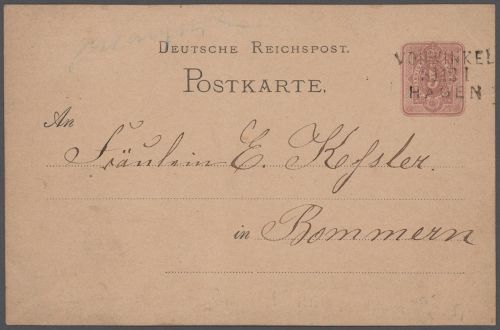 DEUTSCHE REICHSPOST.
POSTKARTE.
VOHWINKEL
HAGEN
An
Fräulein E. Keßler.
in Bommern